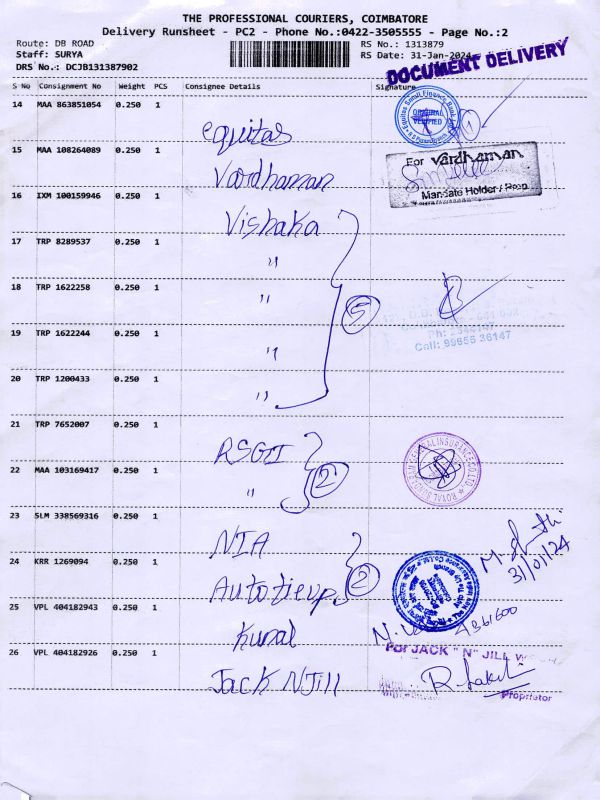 THE PROFESSIONAL COURIERS, COIMBATORE
Delivery Runsheet - PC2 - Phone No.:0422-3505555 - Page No.:2
Route: DB ROAD
RS No.: 1313879
Staff: SURYA
RS Date: 31-Jan-2024
DRS No.: DCJB131387902
DOCUMENT DELIVERY
S No Consignment No Weight PCS Consignee Details Signature
14 MAA 863851054 0.250 1
equitas
ORIGINAL VERIFIED
1
15 MAA 108264089 0.250 1
Vardhaman
For vardhaman
Mandate Holder / Prop.
16 IXM 100159946 0.250 1
Vishaka
17 TRP 8289537 0.250 1
"
18 TRP 1622258 0.250 1
"
5
Ph: 2544147
Cell: 99655 36147
19 TRP 1622244 0.250 1
"
20 TRP 1200433 0.250 1
"
21 TRP 7652007 0.250 1
RSGI
22 MAA 103169417 0.250 1
"
2
23 SLM 338569316 0.250 1
NIA
31/01/24
24 KRR 1269094 0.250 1
Autotieup
2
25 VPL 404182943 0.250 1
Kunal
For JACK " N" JILL
26 VPL 404182926 0.250 1
Jack NJill
Proprietor